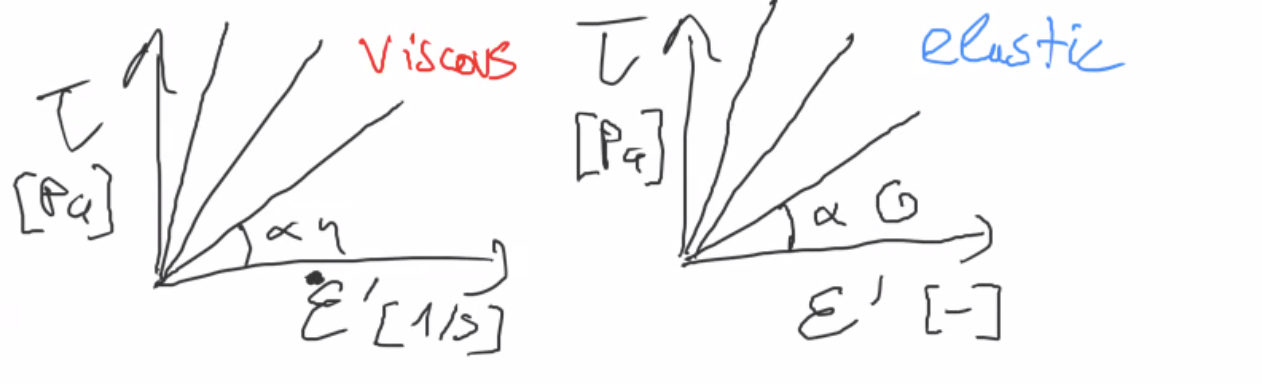 τ viscous
[Pa]
α η
ε̇' [1/s]
τ elastic
[Pa]
α G
ε' [-]